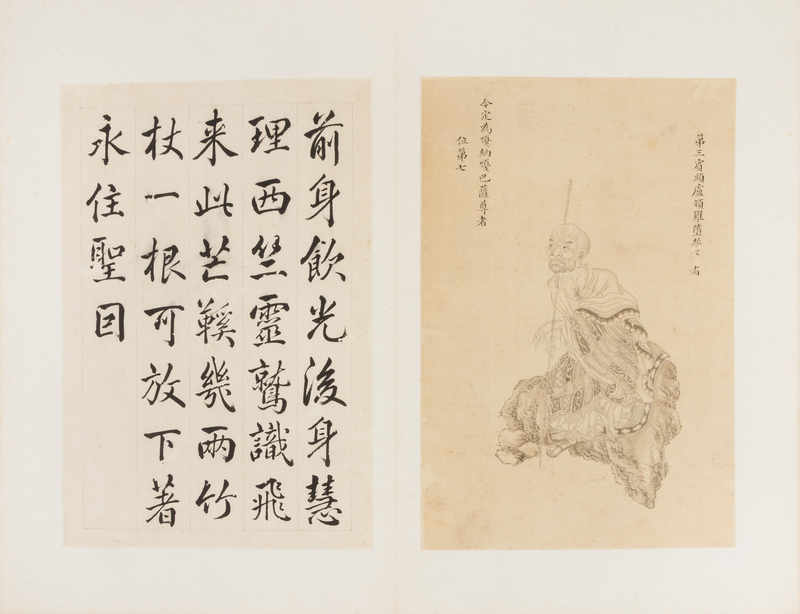 第三賓頭盧頗羅墮誓尊者
今定為嘎納嘎巴薩尊者
位第七
前身飲光後身慧
理西竺靈鷲識飛
来此芒鞵幾兩竹
杖一根可放下著
永住聖囙